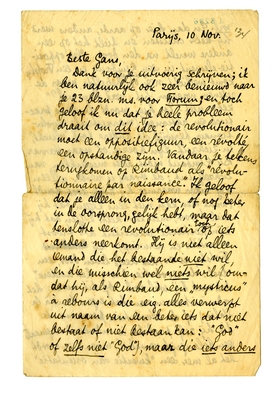 Parijs, 10 Nov.
Beste Gans,
Dank voor je uitvoerig schrijven; ik
ben natuurlijk ook zeer benieuwd naar
je 23 blzn. ms. voor Forum, en toch
geloof ik nu dat je heele probleem
draait om dit idee: de revolutionair
moet een oppositiefiguur, een révolté,
een opstandige zijn. Vandaar je telkens
terugkomen op Rimbaud als "révolu-
tionnaire par naissance". Ik geloof
dat je alleen in den kern, of nog beter
in de oorsprong, gelijk hebt, maar dat
tenslotte een revolutionair op iets
anders neerkomt. Hij is niet alleen
iemand die het bestaande niet wil,
en die misschien wel niets wil (om-
dat hij, als Rimbaud, een "mysticus"
à rebours is die eig. alles verwerpt
uit naam van een beter iets dat niet
bestaat of niet bestaan kan: "God"
of zelfs niet "God"), maar die iets anders